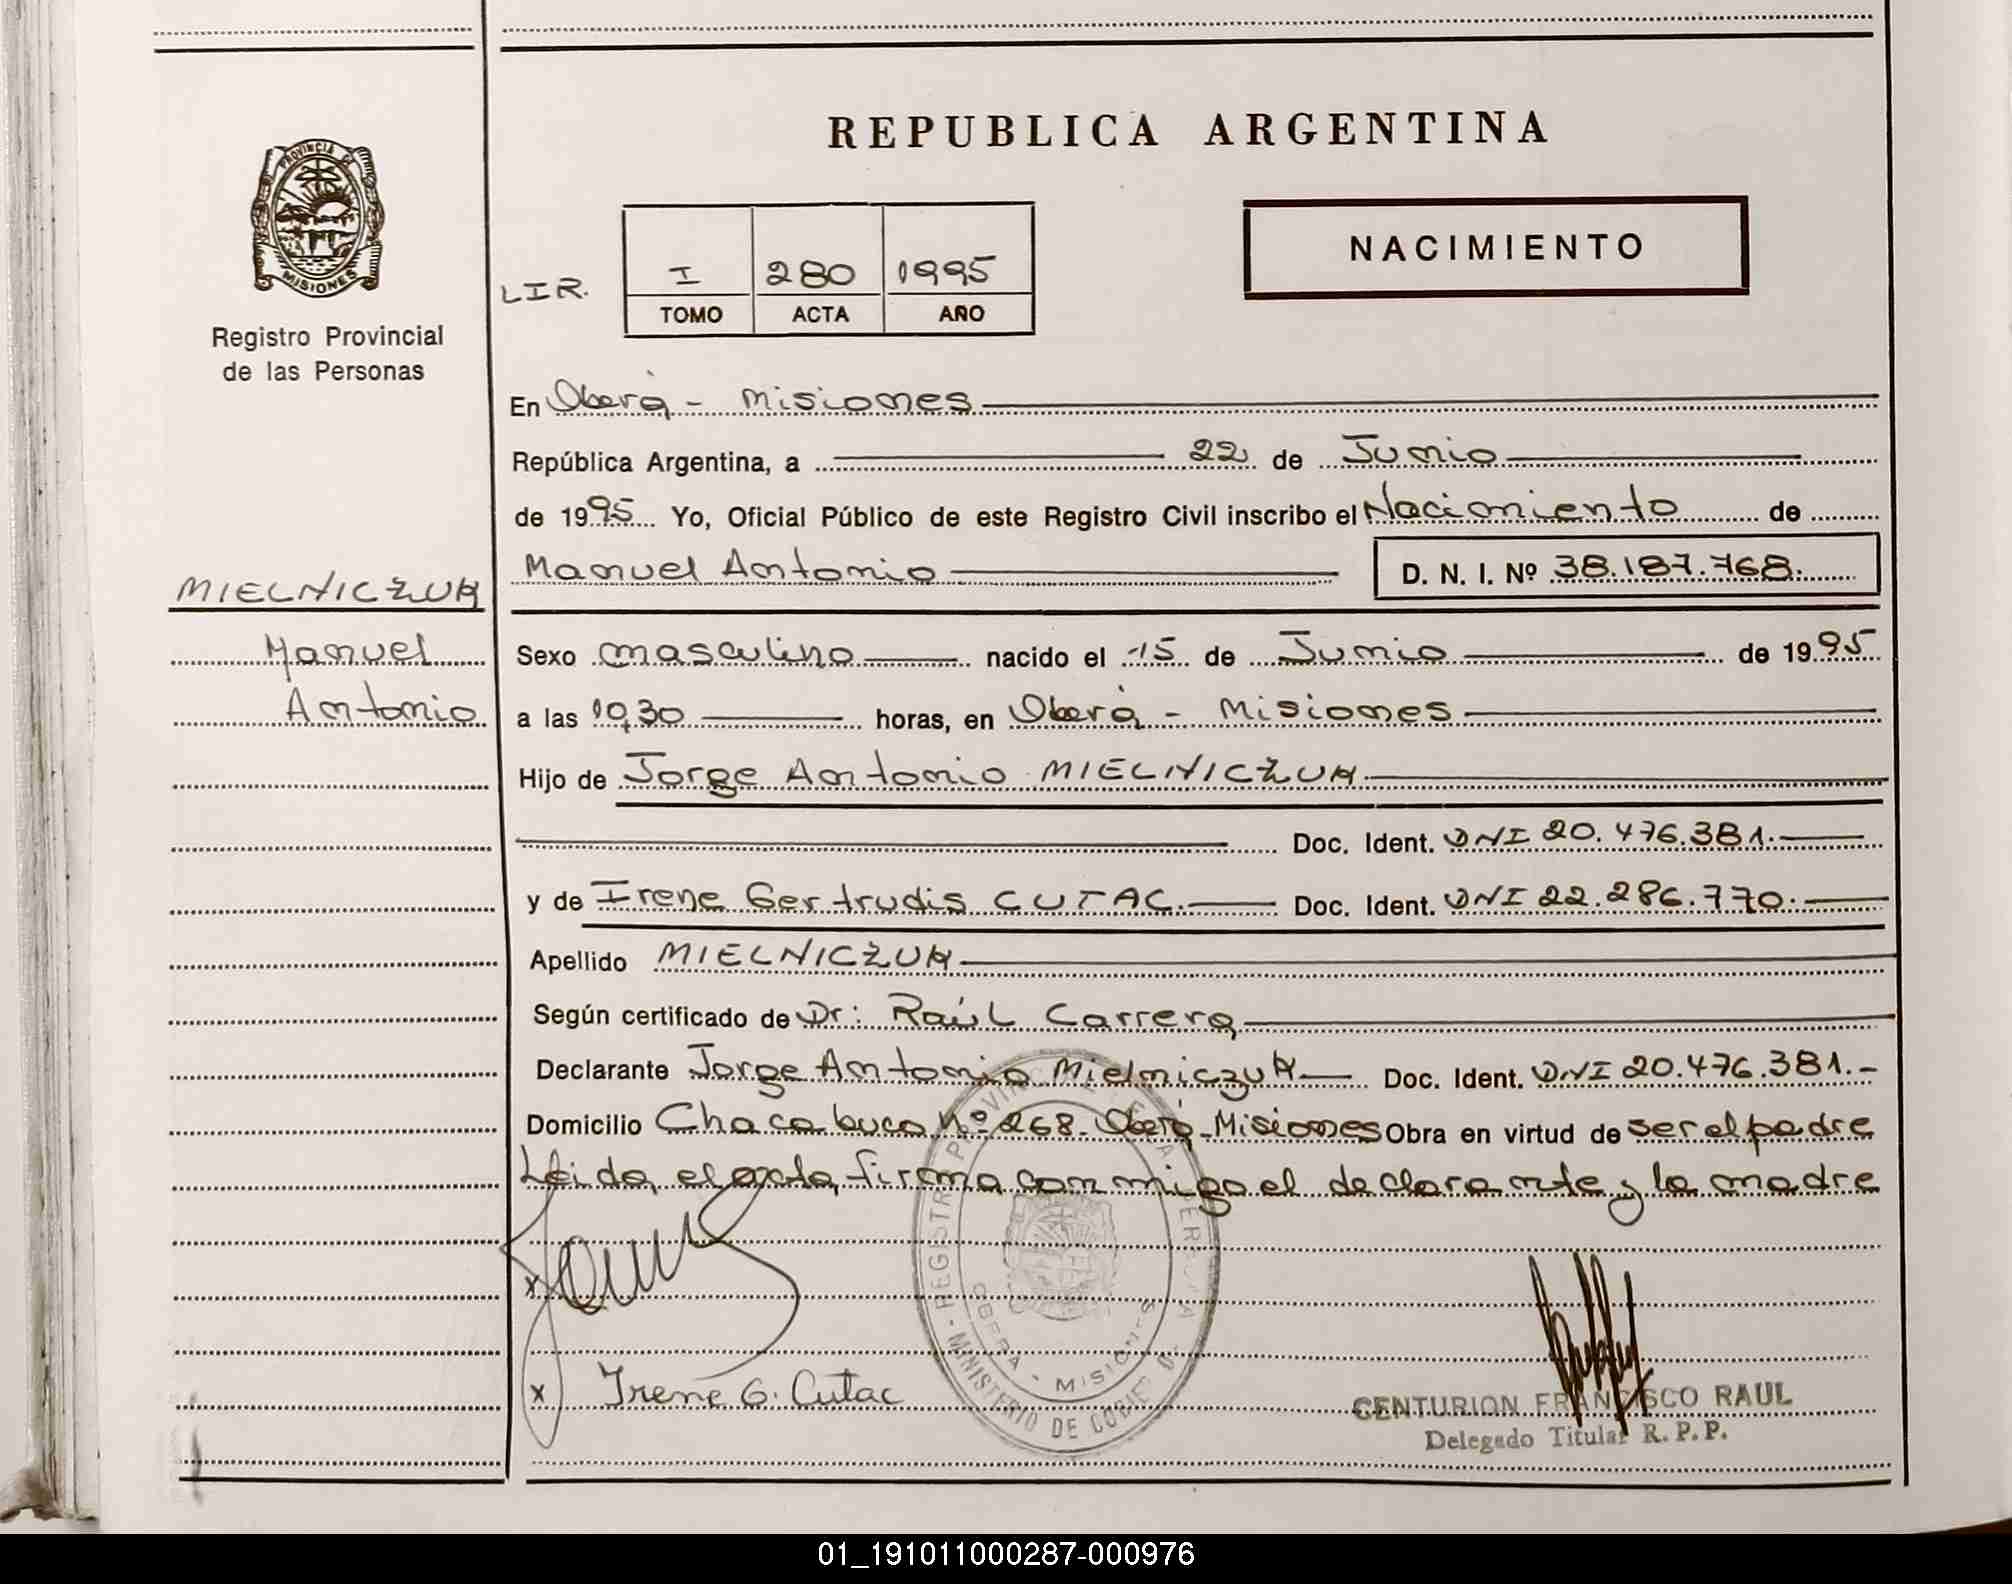 REPUBLICA ARGENTINA
PROVINCIA DE
MISIONES
Registro Provincial
de las Personas
LIR.
I 280 1995
TOMO ACTA AÑO
NACIMIENTO
En Oberá - Misiones
República Argentina, a 22 de Junio
de 1995 Yo, Oficial Público de este Registro Civil inscribo el Nacimiento de
Manuel Antonio D. N. I. Nº 38.187.768.
MIELNICZUK
Manuel
Antonio
Sexo masculino nacido el 15 de Junio de 1995
a las 10,30 horas, en Oberá - Misiones
Hijo de Jorge Antonio MIELNICZUK
Doc. Ident. DNI 20.476.381.
y de Irene Gertrudis CUTAC. Doc. Ident. DNI 22.286.770.
Apellido MIELNICZUK
Según certificado de Dr: Raúl Carrera
Declarante Jorge Antonio Mielniczuk Doc. Ident. DNI 20.476.381.-
Domicilio Chacabuco Nº 268. Oberá-Misiones Obra en virtud de ser el padre
Leida, el acta, firma conmigo el declarante y la madre
x
x Irene G. Cutac
MINISTERIO DE GOBIE
OBERA - MISIONES
CENTURION FRANCISCO RAUL
Delegado Titular R. P. P.
01_191011000287-000976